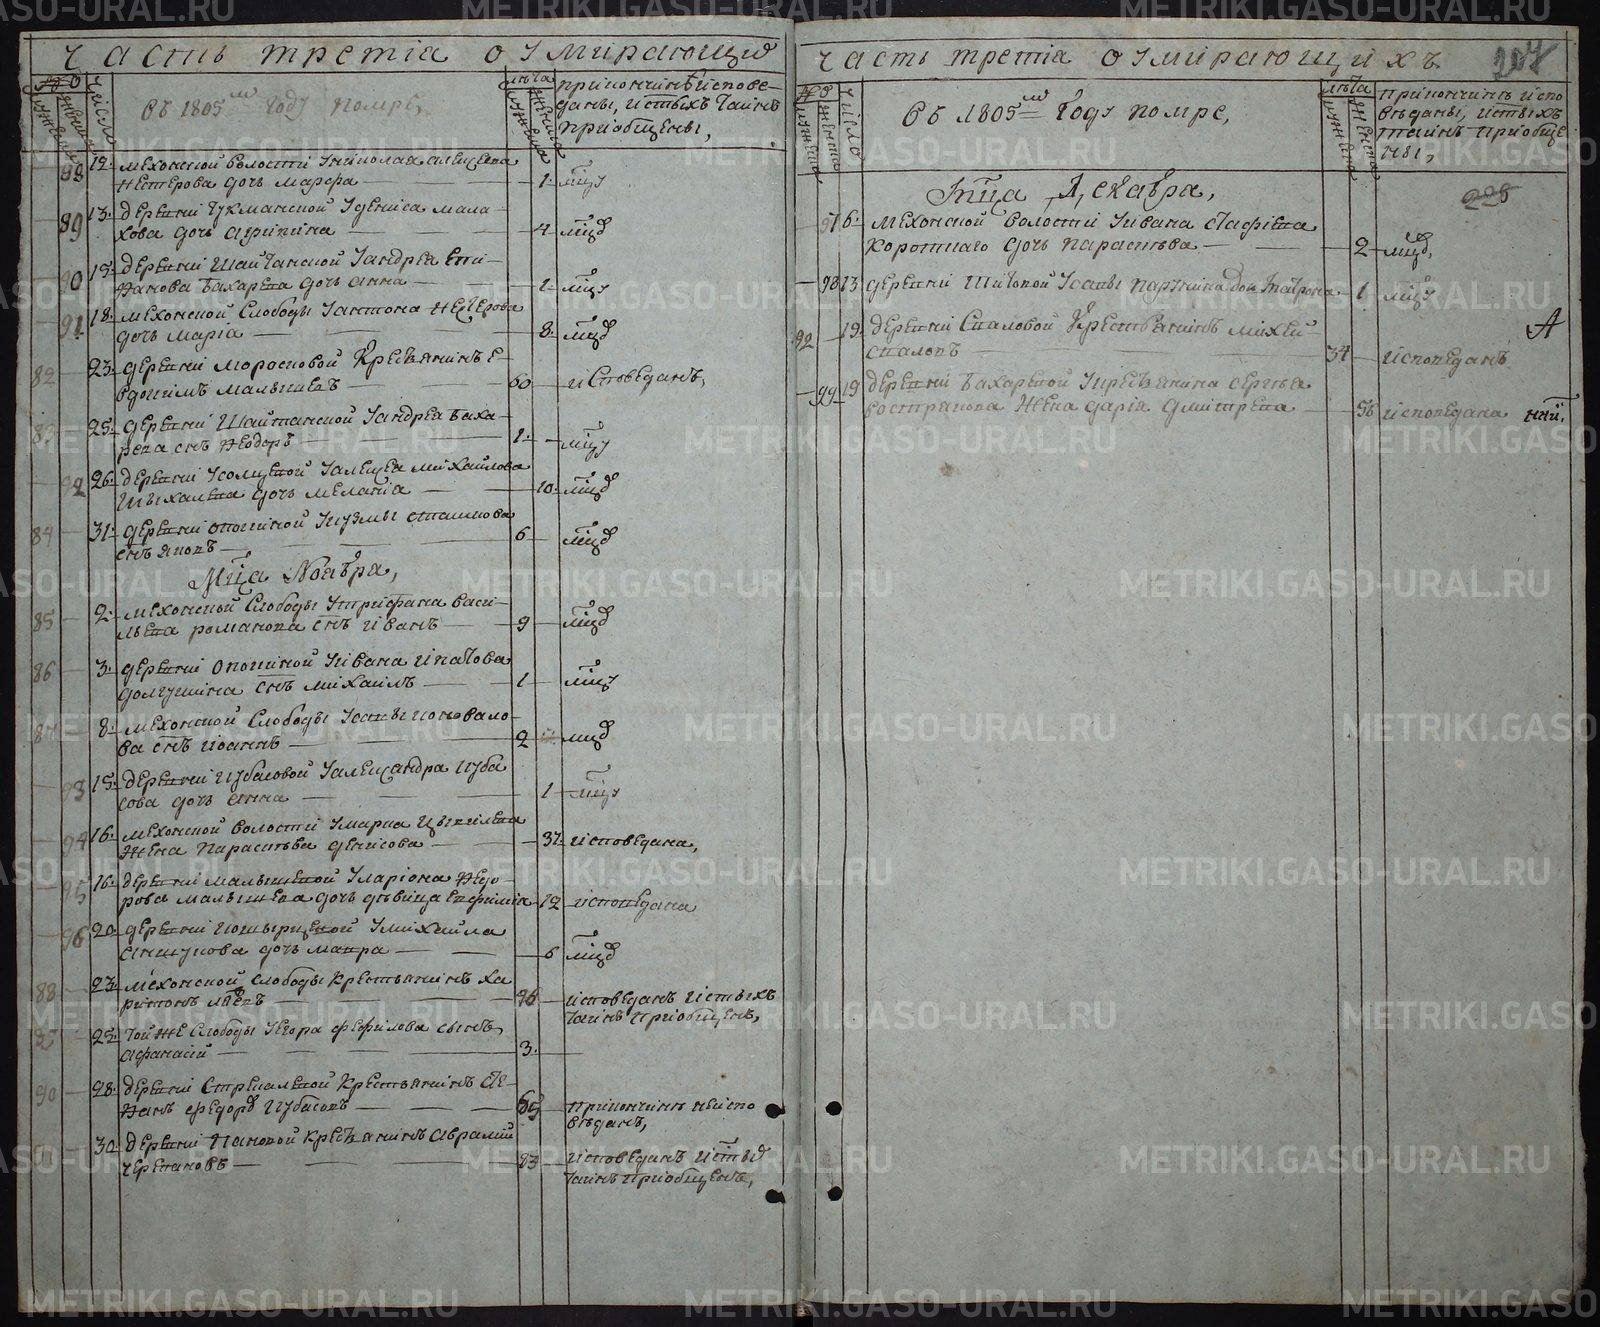 Часть третiа о умирающихъ
въ 1805 м году помре,
число
лѣта
при кончинѣ исповеданы, и стыхъ таинъ
приобщены,
88 12. Мехонской волости у николая алеѯеева
нестерова дочь марфа 1. мцу
89 13. деревни Чукманской у дениса мала-
хова дочь агрипина 4 мцд
90 15. деревни Шайтанской у андреа сти-
панова бахарева дочь анна 1 мцу
91 18. мехонской слободы у антона нестерова
дочь марiа 8. мцд
82 23. деревни морасковой крестьянинъ е-
вдокимъ малышевъ 60 исповеданъ,
83 25. деревни Шайтанской у андреа баха-
рева снъ ѳеодоръ 1. мцу
92 26. деревни усолцевой у алеѯеа михайлова
шыхалева дочь меланiа 10. мцд
84 31. деревни опошиной у кузмы сташкова
снъ яковъ 6 мцд
Мца Ноября,
85 2. мехонской слободы у трифана васи-
льева романова снъ иванъ 9 мцд
86 3. деревни опошиной у ивана ипатова
долгушина снъ михаилъ 1 мцу
87 8. мехонской слободы у савы коновало-
ва снъ иоаннъ 2 мцд
93 15. деревни кубасовой у алеѯандра куба
сова дочь анна 1 мцу
94 16. мехонской волости у марка цыпилева
жена параскѣва денисова 37 исповедана,
95 16. деревни малышевой у ларiона ѳедо-
рова малышева дочь дѣвица евфимiа 12 исповедана
96 20. деревни кошырцевой у михаила
сншукова дочь мавра 6 мцд
88 23. мехонской слободы крестьянинъ ха
ритонъ лвовъ 96 исповеданъ и стыхъ
таинъ приобщенъ,
25. той же слободы у егора фефилова сынъ
афанасiй 3.
90 28. деревни стрекаловой крестьянинъ сте-
панъ федоров кубасовъ 65 при кончинѣ не испо
вѣданъ,
30 деревни пановой крестьянинъ авраамiй
черепановъ 83 исповеданъ и стыхъ
таинъ приобщенъ,
часть третiа о умирающихъ
207
въ 1805 м году помре,
число
лѣта
при кончинѣ испо
вѣданы, и стыхъ
таинъ приобще
ны,
Мца Декабря,
97 6. мехонской волости у ивана стафѣева
короткаго дочь параскѣва 2 мцд,
98 13 деревни шитовой у савы паручина дочь матрона 1 мцу
92 19. деревни спаловой крестьянинъ михей
спаловъ 34 исповеданъ
А
99 19 деревни бахаревой у крестьянина сергѣа
вострякова жена дарiа дмитрева 56 исповедана
METRIKI.GASO-URAL.RU